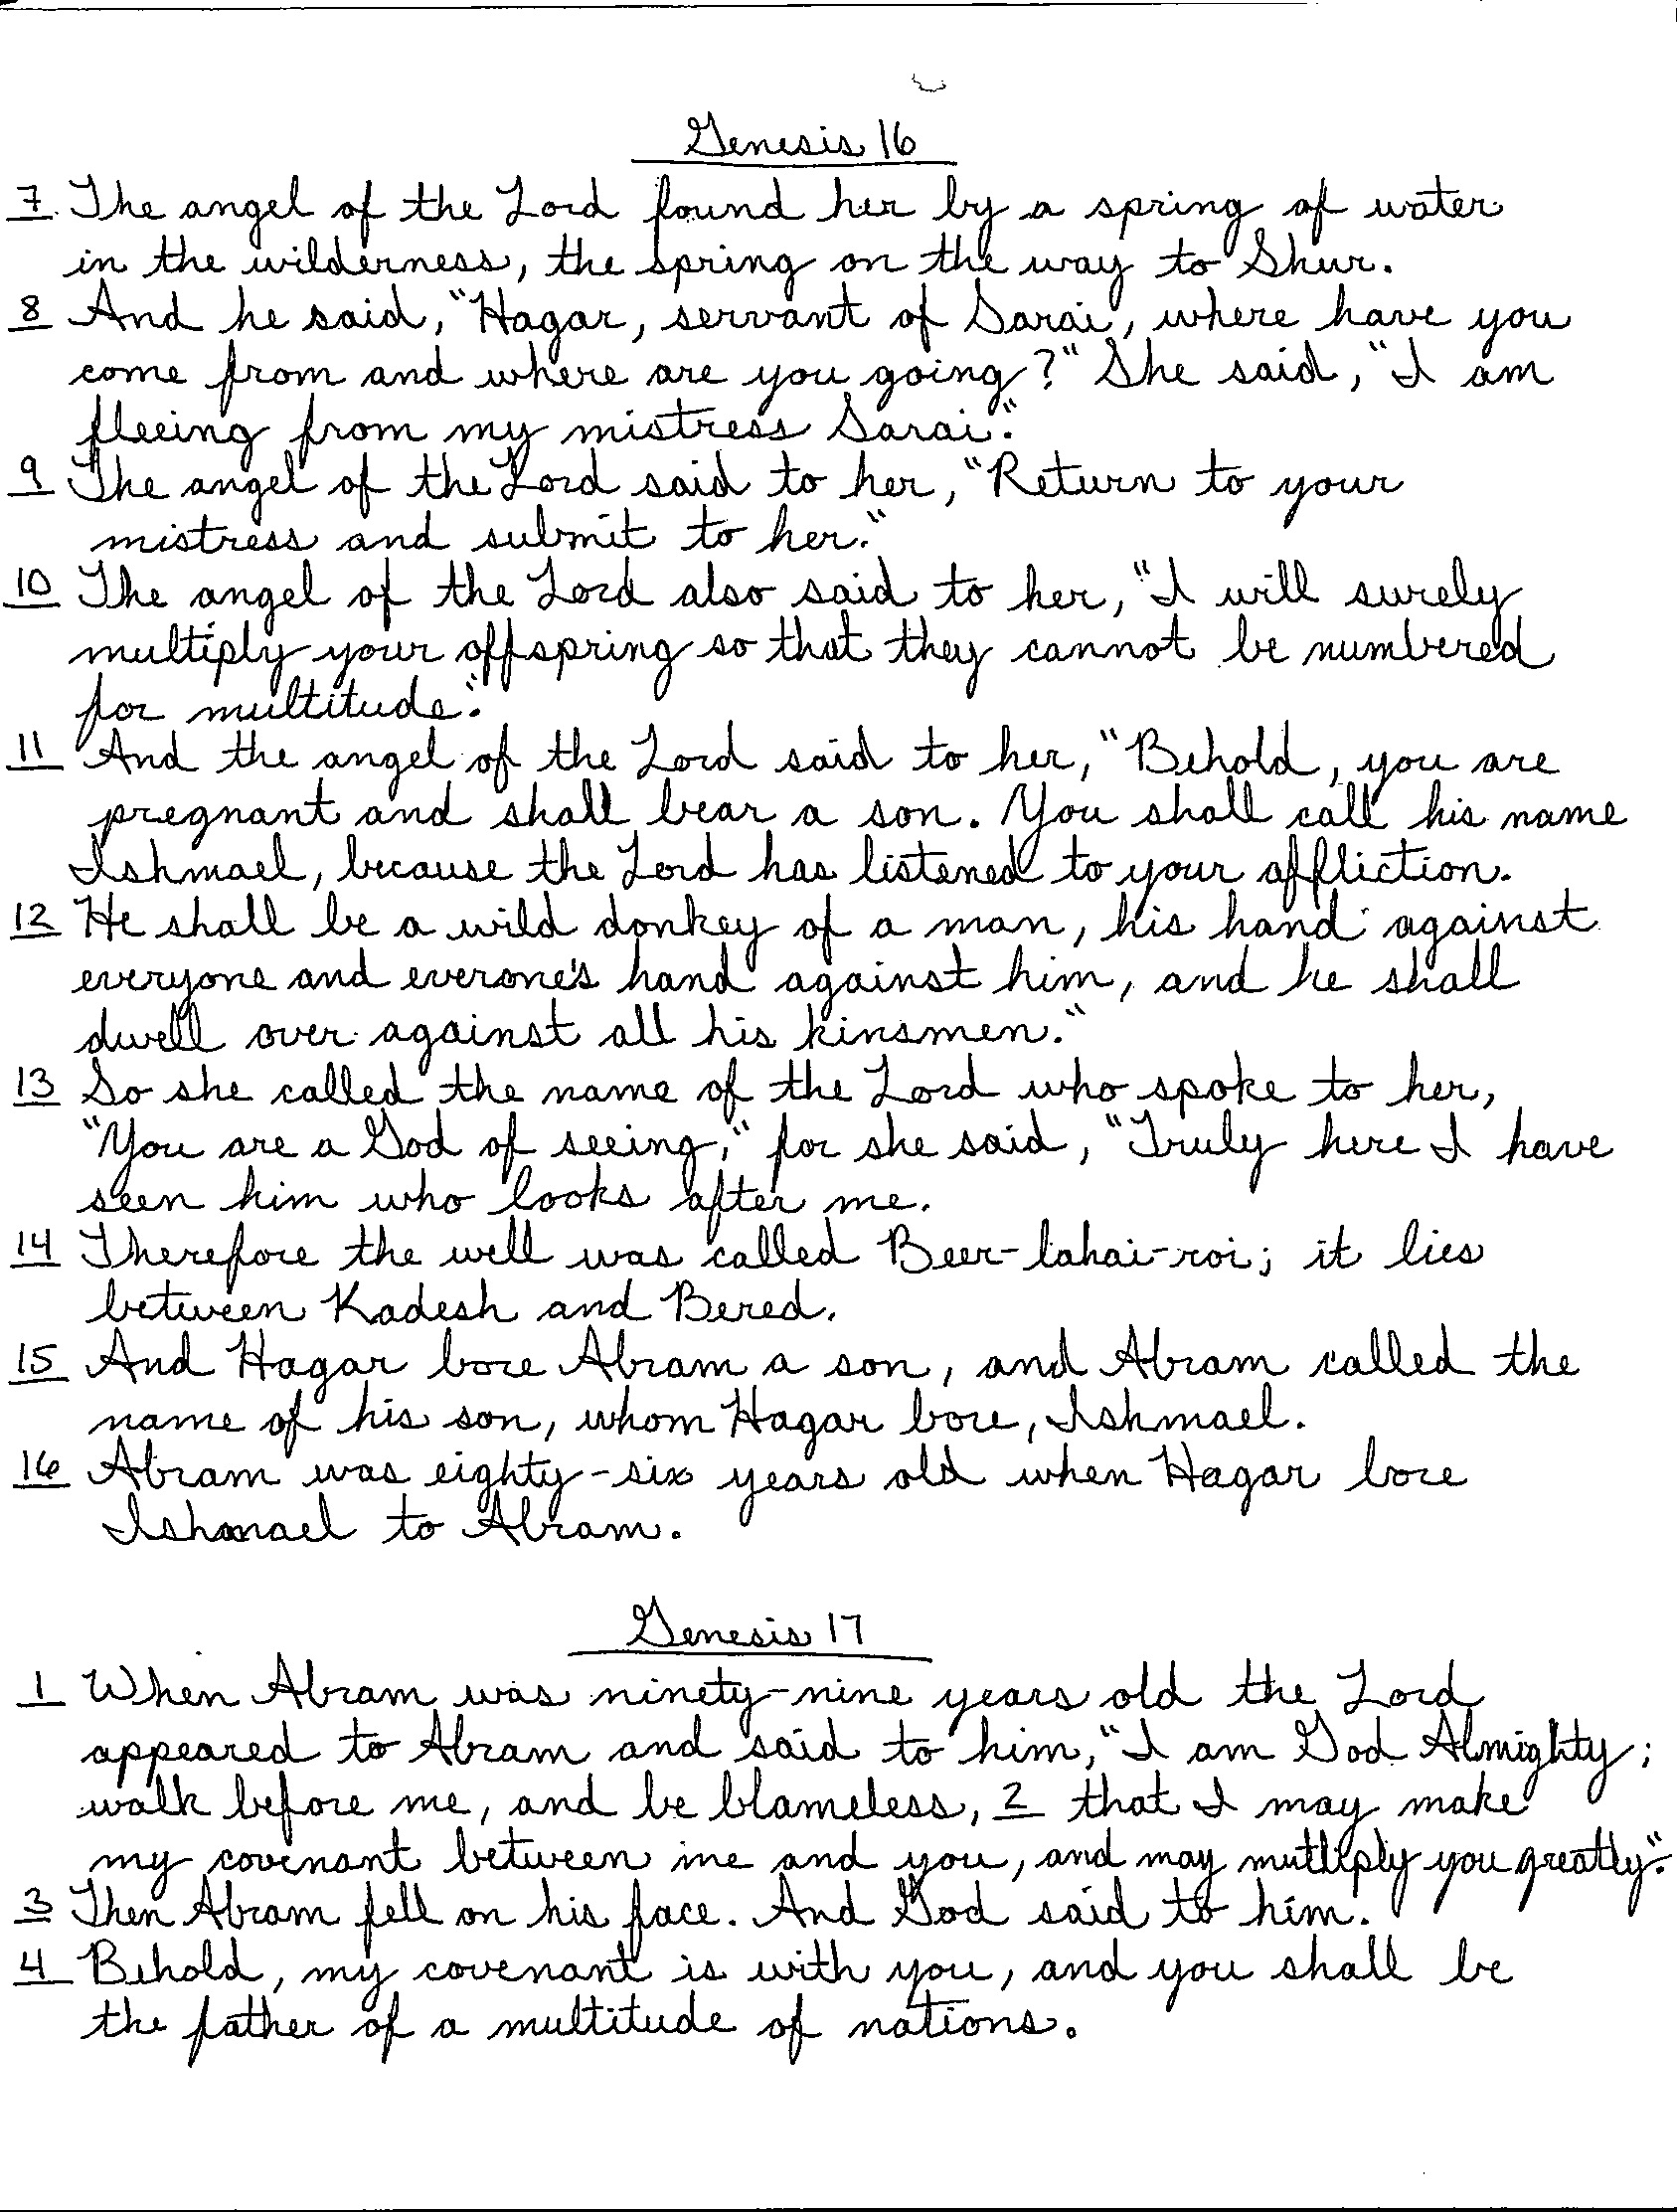 Genesis 16
7 The angel of the Lord found her by a spring of water
in the wilderness, the spring on the way to Shur.
8 And he said, "Hagar, servant of Sarai, where have you
come from and where are you going?" She said, "I am
fleeing from my mistress Sarai."
9 The angel of the Lord said to her, "Return to your
mistress and submit to her."
10 The angel of the Lord also said to her, "I will surely
multiply your offspring so that they cannot be numbered
for multitude."
11 And the angel of the Lord said to her, "Behold, you are
pregnant and shall bear a son. You shall call his name
Ishmael, because the Lord has listened to your affliction.
12 He shall be a wild donkey of a man, his hand against
everyone and everone's hand against him, and he shall
dwell over against all his kinsmen."
13 So she called the name of the Lord who spoke to her,
"You are a God of seeing," for she said, "Truly here I have
seen him who looks after me.
14 Therefore the well was called Beer-lahai-roi; it lies
between Kadesh and Bered.
15 And Hagar bore Abram a son, and Abram called the
name of his son, whom Hagar bore, Ishmael.
16 Abram was eighty-six years old when Hagar bore
Ishmael to Abram.
Genesis 17
1 When Abram was ninety-nine years old the Lord
appeared to Abram and said to him, "I am God Almighty;
walk before me, and be blameless, 2 that I may make
my covenant between me and you, and may mutliply you greatly."
3 Then Abram fell on his face. And God said to him.
4 Behold, my covenant is with you, and you shall be
the father of a multitude of nations.